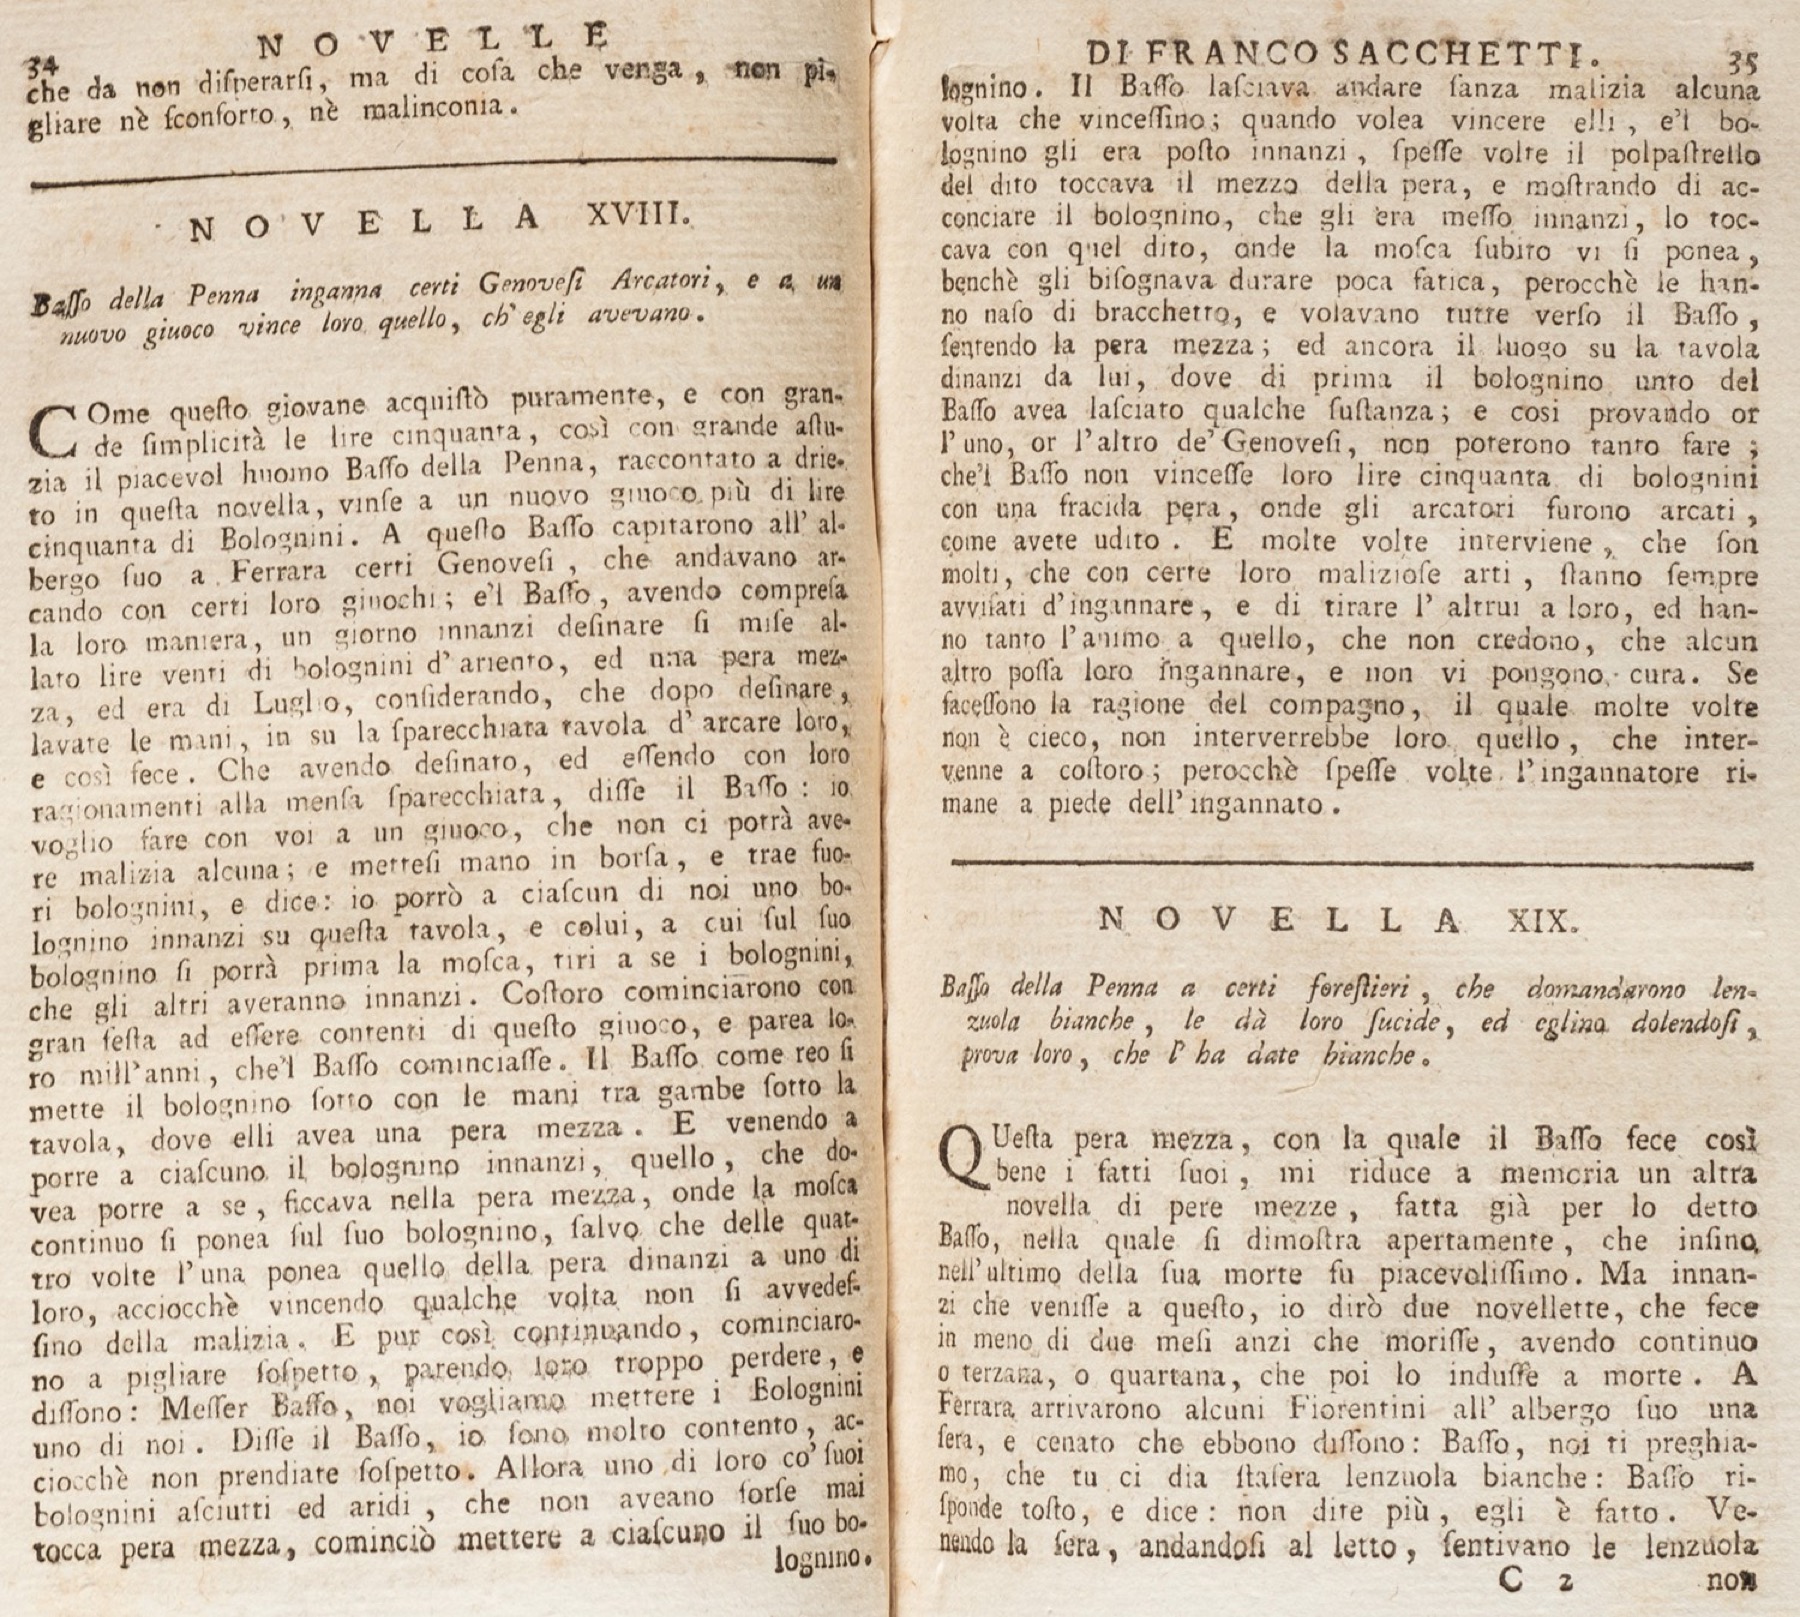 34
NOVELLE
che da non diſperarſi, ma di coſa che venga, non pi-
gliare nè ſconforto, nè malinconia.
NOVELLA XVIII.
Baſſo della Penna inganna certi Genoveſi Arcatori, e a un
nuovo giuoco vince loro quello, ch'egli avevano.
COme queſto giovane acquiſtò puramente, e con gran-
de ſimplicità le lire cinquanta, così con grande aſtu-
zia il piacevol huomo Baſſo della Penna, raccontato a drie-
to in queſta novella, vinſe a un nuovo giuoco più di lire
cinquanta di Bolognini. A queſto Baſſo capitarono all' al-
bergo ſuo a Ferrara certi Genoveſi, che andavano ar-
cando con certi loro giuochi; e'l Baſſo, avendo compreſa
la loro maniera, un giorno innanzi deſinare ſi miſe al-
lato lire venti di bolognini d'ariento, ed una pera mez-
za, ed era di Luglio, conſiderando, che dopo deſinare,
lavate le mani, in su la ſparecchiata tavola d'arcare loro,
e così fece. Che avendo deſinato, ed eſſendo con loro
ragionamenti alla menſa ſparecchiata, diſſe il Baſſo: io
voglio fare con voi a un giuoco, che non ci potrà ave-
re malizia alcuna; e metteſi mano in borſa, e trae fuo-
ri bolognini, e dice: io porrò a ciaſcun di noi uno bo-
lognino innanzi su queſta tavola, e colui, a cui ſul ſuo
bolognino ſi porrà prima la moſca, tiri a se i bolognini,
che gli altri averanno innanzi. Coſtoro cominciarono con
gran feſta ad eſſere contenti di queſto giuoco, e parea lo-
ro mill'anni, che'l Baſſo cominciaſſe. Il Baſſo come reo ſi
mette il bolognino ſotto con le mani tra gambe ſotto la
tavola, dove elli avea una pera mezza. E venendo a
porre a ciaſcuno il bolognino innanzi, quello, che do-
vea porre a se, ficcava nella pera mezza, onde la moſca
continuo ſi ponea ſul ſuo bolognino, ſalvo che delle quat-
tro volte l'una ponea quello della pera dinanzi a uno di
loro, acciocchè vincendo qualche volta non ſi avvedeſ-
ſino della malizia. E pur così continuando, cominciaro-
no a pigliare ſoſpetto, parendo loro troppo perdere, e
diſſono: Meſſer Baſſo, noi vogliamo mettere i Bolognini
uno di noi. Diſſe il Baſſo, io ſono molto contento, ac-
ciocchè non prendiate ſoſpetto. Allora uno di loro co' ſuoi
bolognini aſciutti ed aridi, che non aveano forſe mai
tocca pera mezza, cominciò mettere a ciaſcuno il ſuo bo-
lognino.
DI FRANCO SACCHETTI.
35
lognino. Il Baſſo laſciava andare ſanza malizia alcuna
volta che vinceſſino; quando volea vincere elli, e'l bo-
lognino gli era poſto innanzi, ſpeſſe volte il polpaſtrello
del dito toccava il mezzo della pera, e moſtrando di ac-
conciare il bolognino, che gli era meſſo innanzi, lo toc-
cava con quel dito, onde la moſca ſubito vi ſi ponea,
benchè gli biſognava durare poca fatica, perocchè le han-
no naſo di bracchetto, e volavano tutte verſo il Baſſo,
ſentendo la pera mezza; ed ancora il luogo su la tavola
dinanzi da lui, dove di prima il bolognino unto del
Baſſo avea laſciato qualche ſuſtanza; e così provando or
l'uno, or l'altro de' Genoveſi, non poterono tanto fare;
che'l Baſſo non vinceſſe loro lire cinquanta di bolognini
con una fracida pera, onde gli arcatori furono arcati,
come avete udito. E molte volte interviene, che ſon
molti, che con certe loro malizioſe arti, ſtanno ſempre
avviſati d'ingannare, e di tirare l' altrui a loro, ed han-
no tanto l'animo a quello, che non credono, che alcun
altro poſſa loro ingannare, e non vi pongono cura. Se
faceſſono la ragione del compagno, il quale molte volte
non è cieco, non interverrebbe loro quello, che inter-
venne a coſtoro; perocchè ſpeſſe volte l'ingannatore ri-
mane a piede dell'ingannato.
NOVELLA XIX.
Baſſo della Penna a certi foreſtieri, che domandarono len-
zuola bianche, le dà loro ſucide, ed eglino dolendoſi,
prova loro, che l' ha date bianche.
QUeſta pera mezza, con la quale il Baſſo fece così
bene i fatti ſuoi, mi riduce a memoria un altra
novella di pere mezze, fatta già per lo detto
Baſſo, nella quale ſi dimoſtra apertamente, che inſino
nell'ultimo della ſua morte fu piacevoliſſimo. Ma innan-
zi che veniſſe a queſto, io dirò due novellette, che fece
in meno di due meſi anzi che moriſſe, avendo continuo
o terzana, o quartana, che poi lo induſſe a morte. A
Ferrara arrivarono alcuni Fiorentini all' albergo ſuo una
ſera, e cenato che ebbono diſſono: Baſſo, noi ti preghia-
mo, che tu ci dia ſtaſera lenzuola bianche: Baſſo ri-
ſponde toſto, e dice: non dite più, egli è fatto. Ve-
nendo la ſera, andandoſi al letto, ſentivano le lenzuola
C 2
non